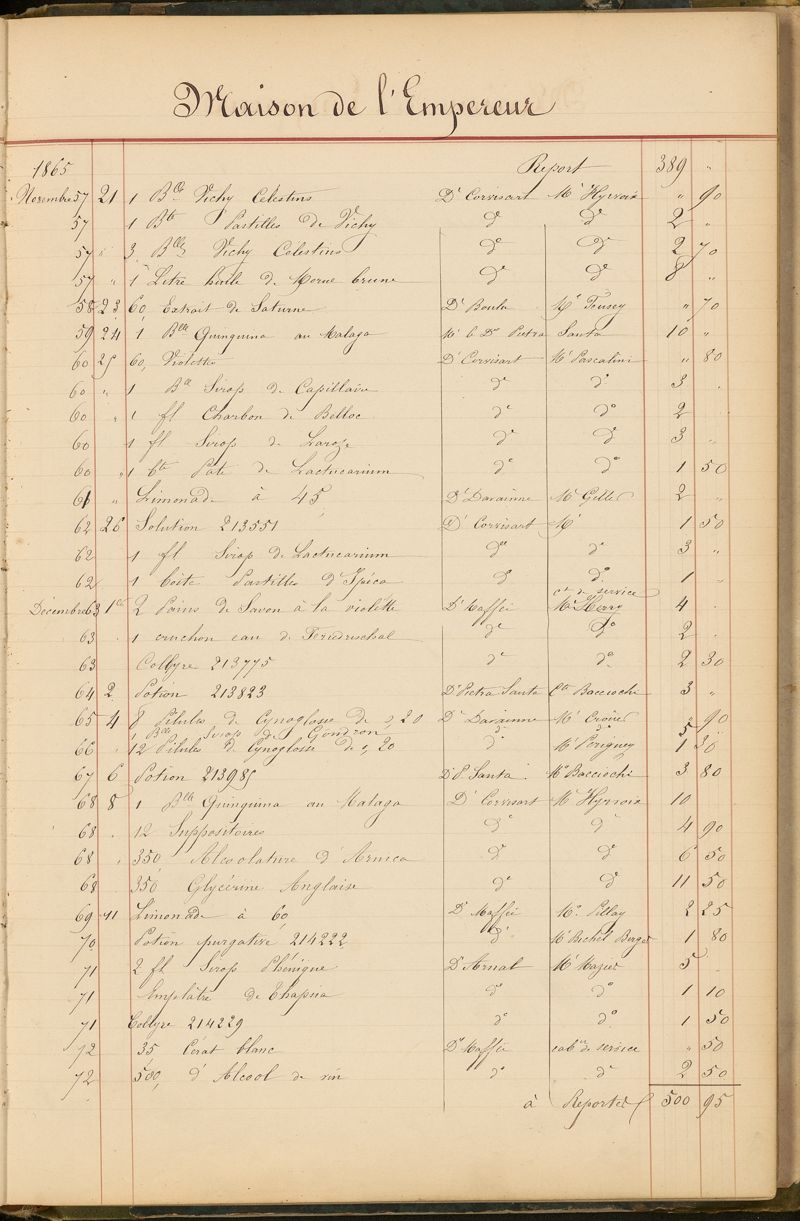 Maison de l'Empereur
1865 Report 389 "
Novembre 57 21 1 Blle Vichy Celestins Dr Corvisart Mr Hyrvoix " 90
57 1 Bte Pastilles de Vichy do do 2 "
57 " 3 Blles Vichy Celestins do do 2 70
57 " 1 Litre huile de Morue brune do do 8 "
58 23 60, Extrait de Saturne Dr Boulu " 70
59 24 1 Blle Quinquina au Malaga Mr le Dr Pietra Santa 10 "
60 25 60, Violette Dr Corvisart Mr Pascalini " 80
60 " 1 Blle Sirop de Capillaire do do 3 "
60 " 1 fl Charbon de Belloc do do 2
60 1 fl Sirop de Laroze do do 3 "
60 " 1 bte Pate de Lactucarium do do 1 50
61 " Limonade à 45 Dr Davainne Mr Gelle 2 "
62 26 Solution 213551 Dr Corvisart Mr 1 50
62 1 fl Sirop de Lactucarium do do 3 "
62 1 boîte Pastilles d'Ipéca do do 1 "
de service
Décembre 63 1er 2 Pains de Savon à la violette Dr Maffei Mr Henry 4 .
63 1 cruchon eau de Friedrischal do do 2 .
63 Collyre 213775 do do 2 30
64 2 Potion 213823 Dr Pietra Santa Cte Bacciochi 3 "
65 4 8 Pilules de Cynoglosse de 0,20 Dr Davainne Mr " 90
1 Blle Sirop de Goudron do 5
66 12 Pilules de Cynoglosse de 0,20 do Mr Perigney 1 30
67 6 Potion 213985 Dr P. Santa Mr Bacciochi 3 80
68 8 1 Blle Quinquina au Malaga Dr Corvisart Mr Hyrvoix 10
68 . 12 Suppositoires do do 4 90
68 " 350, Alcoolature d'Arnica do do 6 50
68 350 Glycérine Anglaise do do 11 50
69 11 Limonade à 60, Dr Maffei Mr Pillay 2 25
70 Potion purgative 214222 do Mr Bichet Berger 1 80
71 2 fl Sirop Phénique Dr Arnal Mr 5 .
71 Emplâtre de Thapsia do do 1 10
71 Collyre 214229 do do 1 50
72 35 Cérat blanc Dr Maffei cabt de service " 50
72 500, d'Alcool de vin do do 2 50
à Reporter 500 95